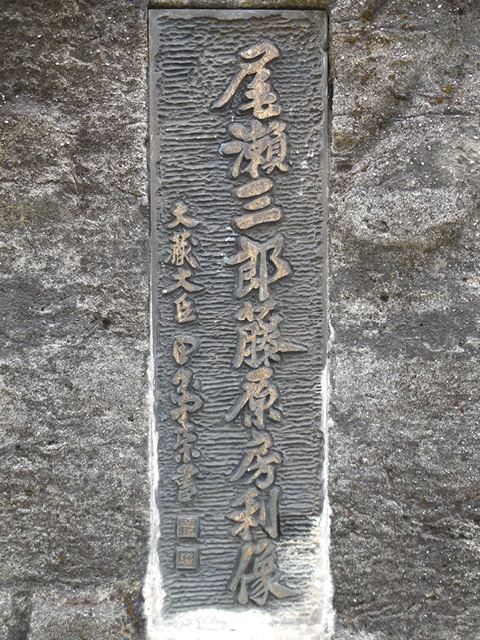 尾瀬三郎藤原房利像
大蔵大臣 田中角栄書